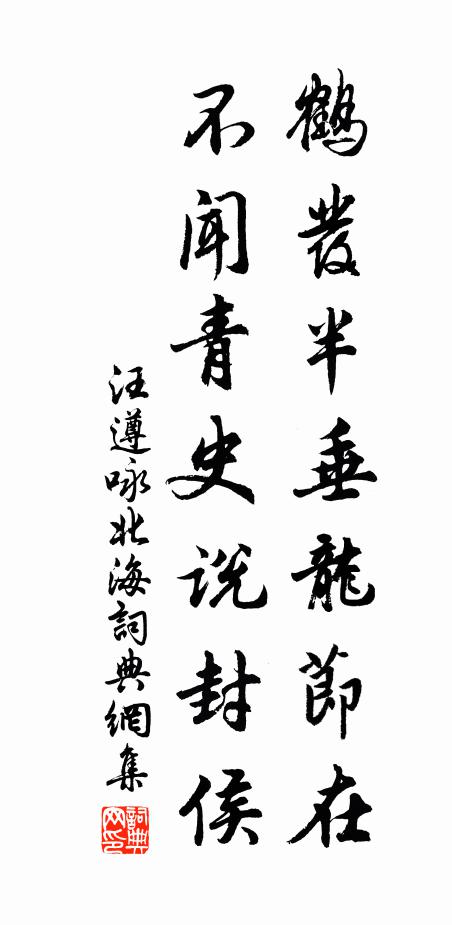 鶴發半垂龍節在
不聞青史説封侯
汪遵咏北海詞典網集
詞典网印